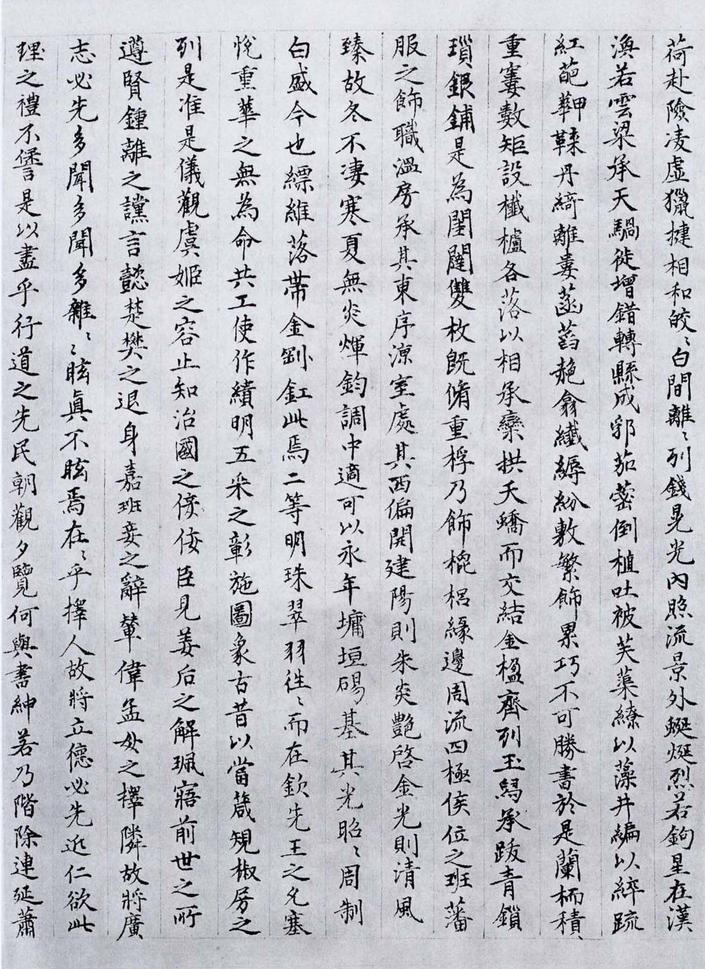 荷赴險凌虛獵揵相和皎〻白間離〻列錢晃光內照流景外烻烻烈若鉤星在漢
渙若雲梁承天騧徙增錯轉縣成郭茄蔤倒植吐被芙蕖繚以藻井編以綷疏
紅葩䪤䪥丹綺離婁菡萏赩翕纖縟紛敷繁飾累巧不可勝書於是蘭栭積
重窶數矩設櫼櫨各落以相承欒拱夭蟜而交結金楹齊列玉舄承跋青鎖
瑣銀鋪是為閨闥雙枚既脩重桴乃飾槐梠緣邊周流四極侯位之班藩
服之飾職溫房承其東序涼室處其西偏開建陽則朱炎艷啓金光則清風
臻故冬不淒寒夏無炎燀鈞調中適可以永年墉垣碭基其光昭〻周制
白盛今也縹維落帶金釭此焉二等明珠翠羽往〻而在欽先王之允塞
悅重華之無為命共工使作繢明五采之彰施圖象古昔以當箴規椒房之
列是准是儀觀虞姬之容止知治國之佞臣見姜后之解珮寤前世之所
遵賢鍾離之讜言懿楚樊之退身嘉班妾之辭輦偉孟母之擇隣故將廣
志必先多聞多聞多雜〻眩真不眩焉在〻乎擇人故將立德必先近仁欲此
理之禮不諐是以盡乎行道之先民朝觀夕覽何與書紳若乃階除連延蕭